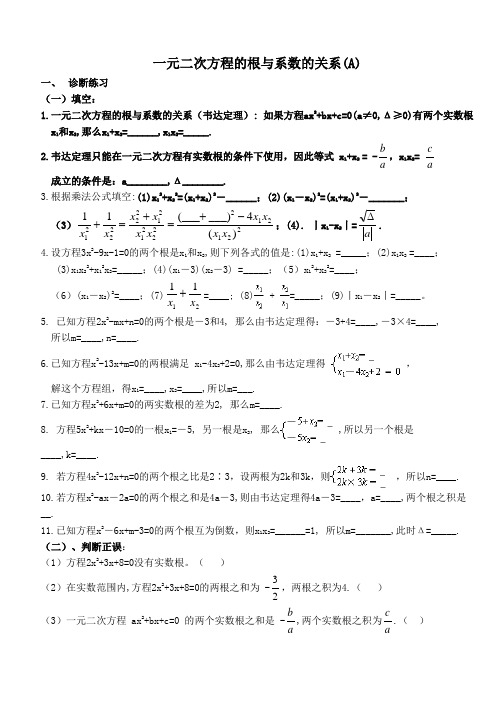 一元二次方程的根与系数的关系(A)
一、 诊断练习
（一）填空：
1.一元二次方程的根与系数的关系（韦达定理）: 如果方程ax²+bx+c=0(a≠0,Δ≥0)有两个实数根
x₁和x₂,那么x₁+x₂=______,x₁x₂=_____.
2.韦达定理只能在一元二次方程有实数根的条件下使用，因此等式 x₁+x₂ = -b/a，x₁x₂= c/a
成立的条件是：a________,Δ_________.
3.根据乘法公式填空:(1)x₁²+x₂²=(x₁+x₂)²－_______；(2)(x₁－x₂)²=(x₁+x₂)²－________；
（3）1/x₁²+1/x₂²=(x₂²+x₁²)/(x₁²x₂²)=((___+___)²－4x₁x₂)/(x₁x₂)²；(4). ｜x₁-x₂｜=√Δ/a.
4.设方程3x²-9x-1=0的两个根是x₁和x₂,则下列各式的值是:(1)x₁+x₂ =_____；(2)x₁x₂ =____；
(3)x₁x₂²+x₁²x₂=_____；(4)(x₁－3)(x₂－3) =_____；（5）x₁²+x₂²=____；
（6）(x₁－x₂)²=____；(7)1/x₁+1/x₂=____；(8)x₂/x₁ + x₂/x₁=_____；(9)｜x₁－x₂｜=_____。
5. 已知方程2x²-mx+n=0的两个根是－3和4, 那么由韦达定理得：－3+4=____,－3×4=____,
所以m=____,n=____.
6.已知方程x²-13x+m=0的两根满足 x₁-4x₂+2=0,那么由韦达定理得 {x₁+x₂=_ x₁－4x₂+2 = 0 ，
解这个方程组，得x₁=____,x₂=____,所以m=___.
7.已知方程x²+6x+m=0的两实数根的差为2, 那么m=____.
8. 方程5x²+kx－10=0的一根x₁=－5, 另一根是x₂, 那么{－5+x₂=_ －5x₂=_ ,所以另一个根是
____,k=____.
9. 若方程4x²-12x+n=0的两个根之比是2∶3，设两根为2k和3k，则{2k+3k=_ 2k×3k=_ ，所以n=____.
10.若方程x²-ax－2a=0的两个根之和是4a－3,则由韦达定理得4a－3=____，a=____,两个根之积是
__.
11.已知方程x²－6x+m-3=0的两个根互为倒数，则x₁x₂=______=1, 所以m=_______,此时Δ=_____.
（二）、判断正误：
（1）方程2x²+3x+8=0没有实数根。（ ）
（2）在实数范围内,方程2x²+3x+8=0的两根之和为 -3/2，两根之积为4.（ ）
（3）一元二次方程 ax²+bx+c=0 的两个实数根之和是 -b/a,两个实数根之积为c/a.（ ）